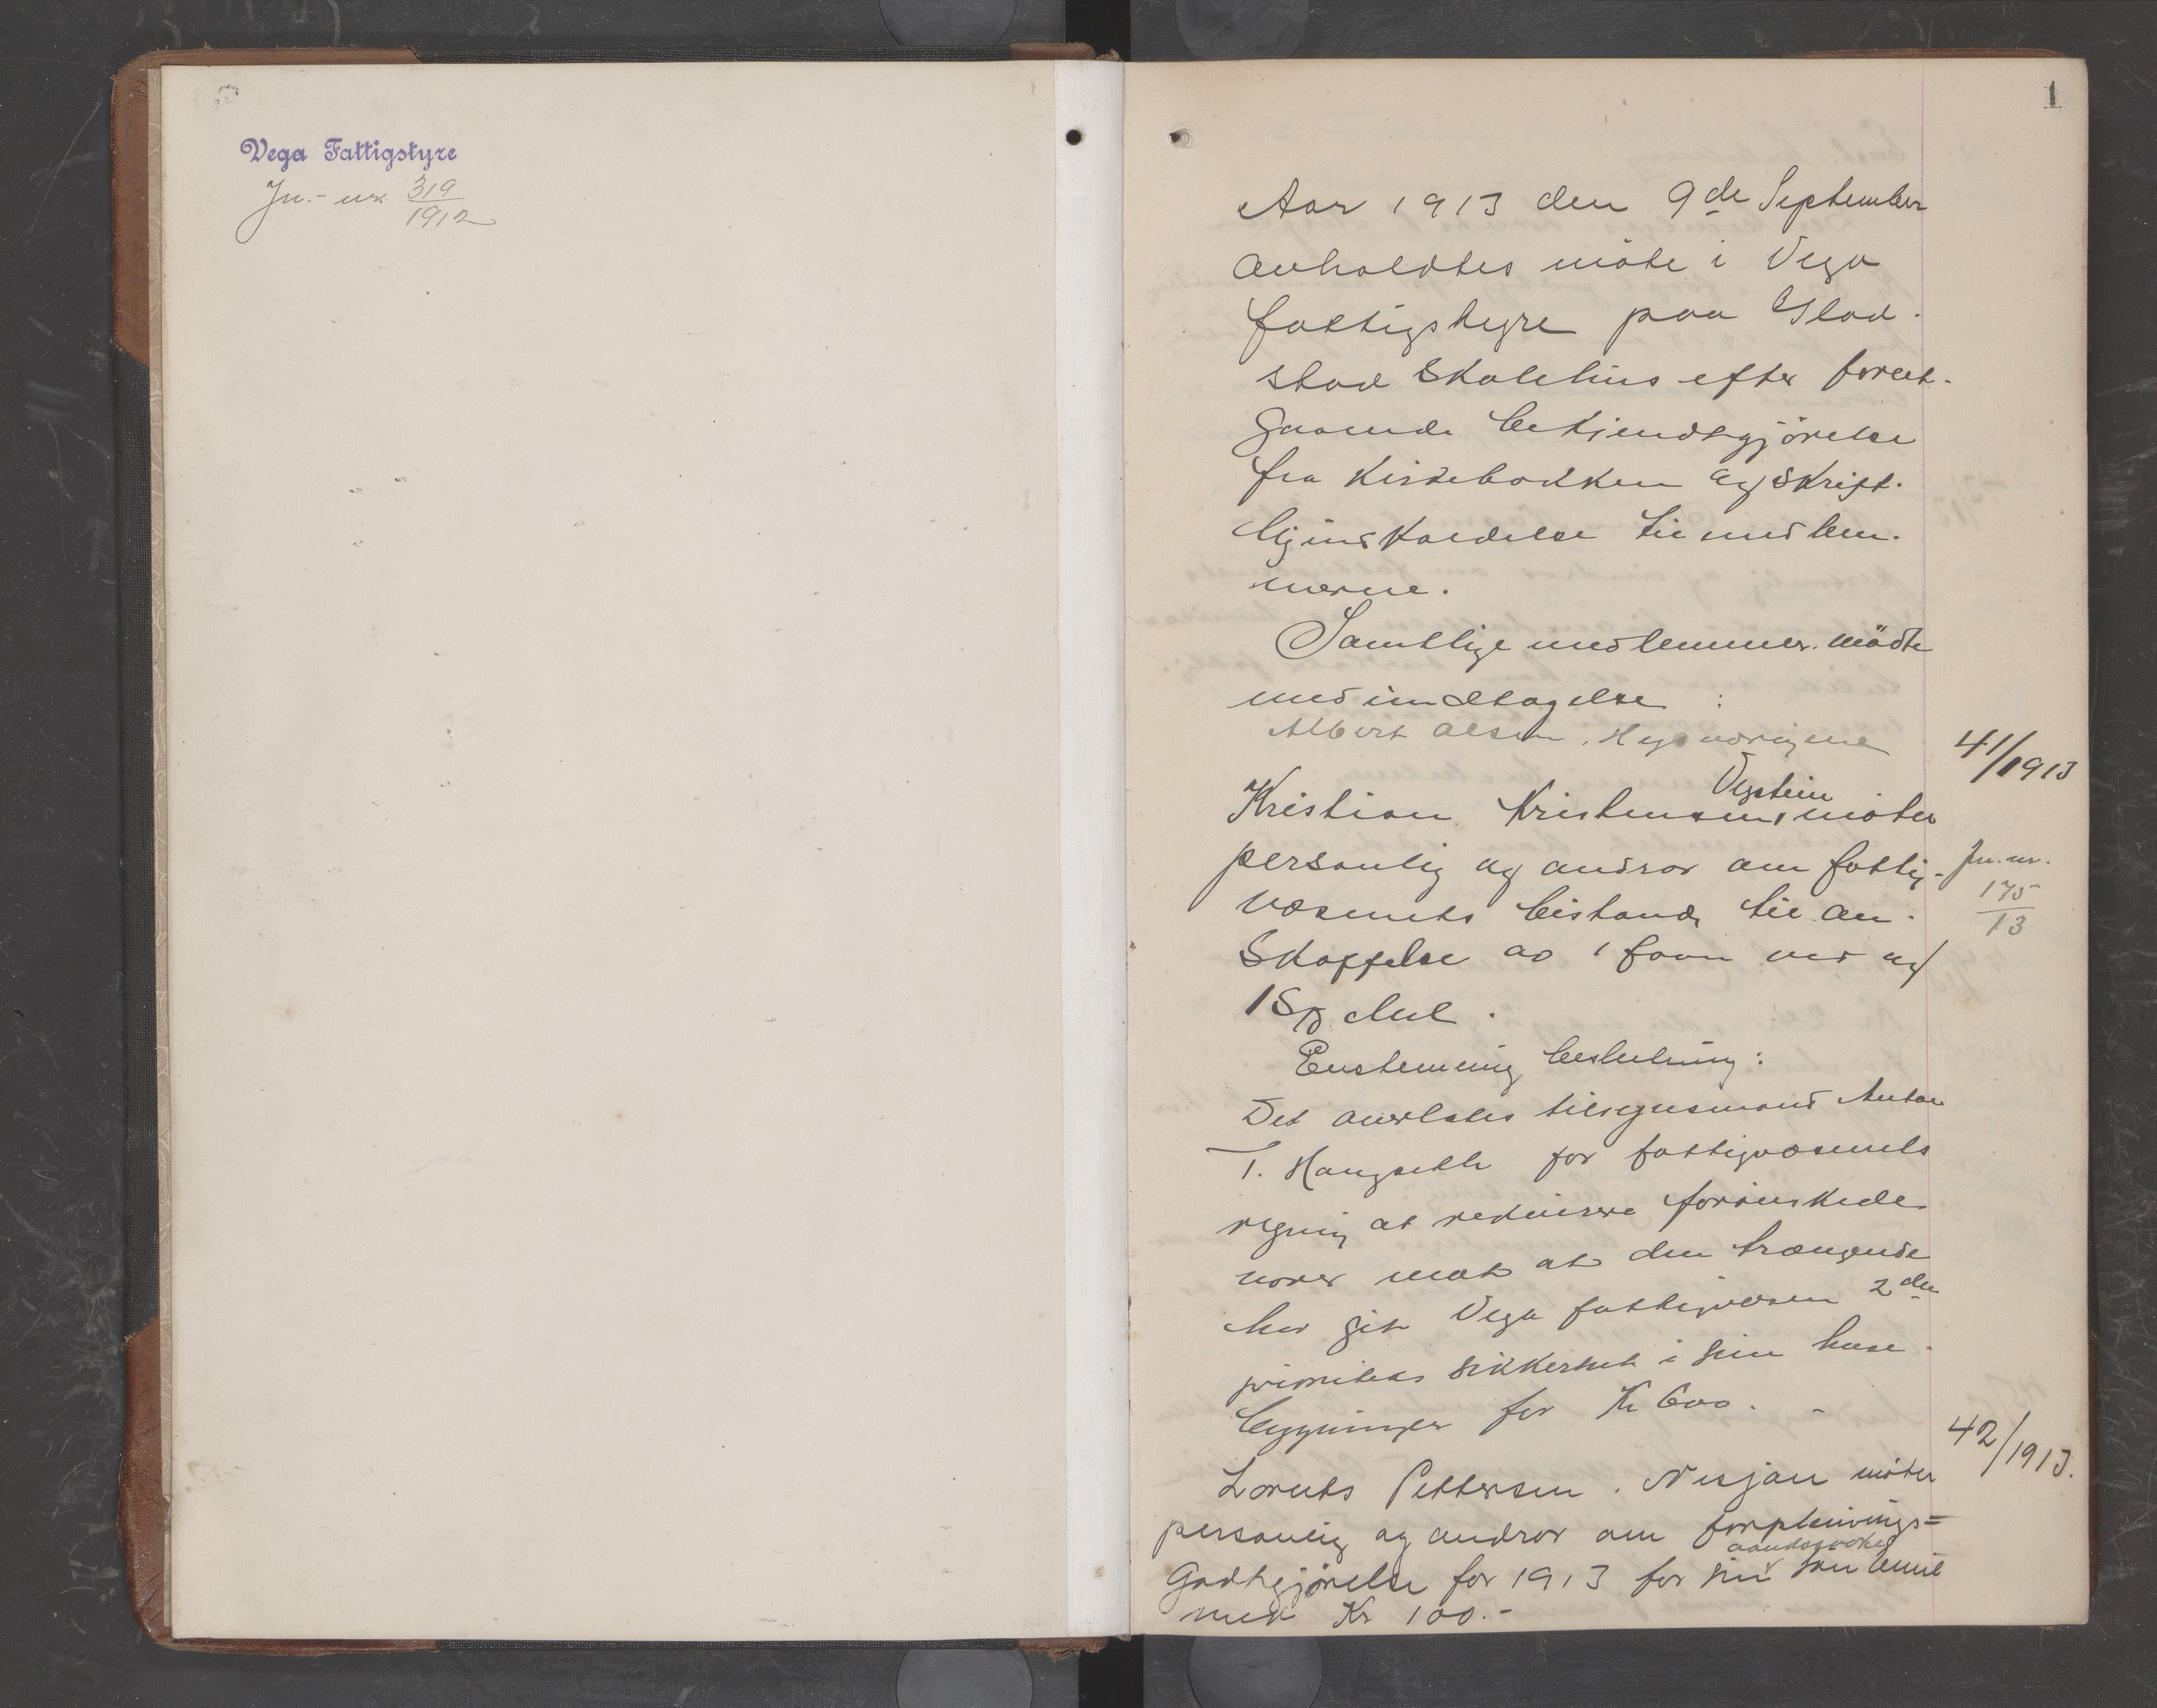 Vega Fattigstyre
Jn.- nr. 319/1912
1
Aar 1913 den 9de September
avholdtes möte i Vega
fattigstyre paa Glad-
stad Skolehus efter forut-
gaaende bekjendtgjörelse
fra kirkebakken og skrift-
lig indkaldelse til medlem-
merne.
Samtlige medlemmer mödte
med undtagelse :
Albert Olsen,
41/1913
Vegstein
Kristian Kristensen, möter
personlig og andror om fattig-
Jn. nr.
175/13
væsenets bistand til an-
skaffelse av 1 favn ved og
1 Sæk Mel.
Enstemmig beslutning:
Det overlates tilsynsmand Anton
T. Haugseth for fattigvæsenets
regning at rekvirere forönskede
varer mot at den trængende
har git Vega fattigvæsen 2den
prioritets sikkerhet i sine huse
bygninger for Kr 600. -
42/1913.
Lorents Pettersen. Nesjan möter
personlig og andror om forpleinings=
aandssvake
Godtgjörelse for 1913 for sin sön Emil
med Kr 100.-